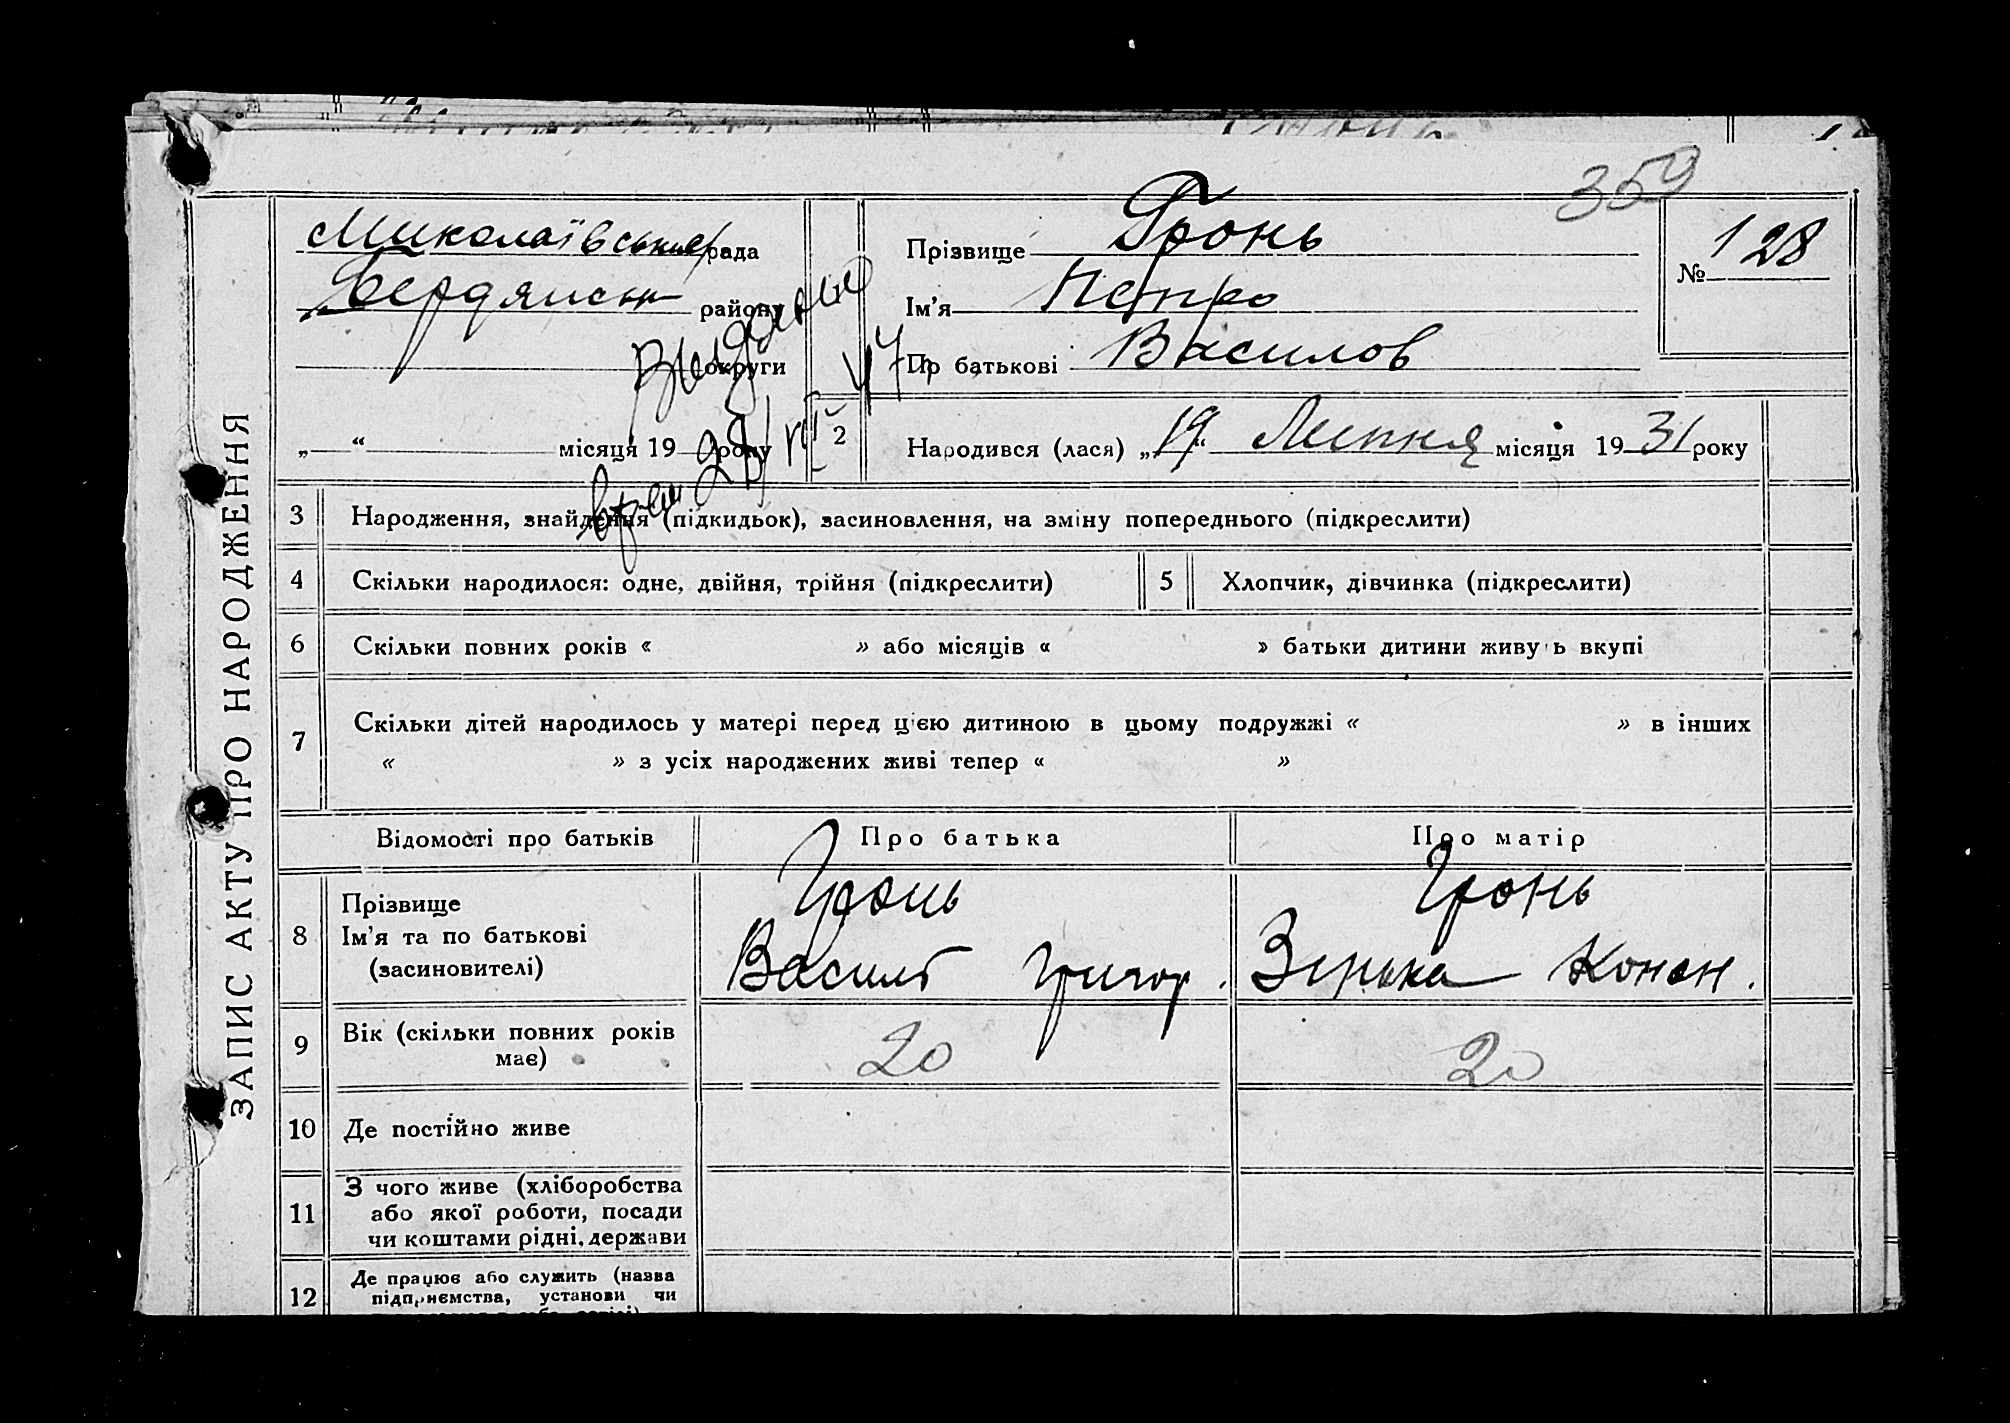 359
Миколаївська рада
Бердянськ району
округи
„ “ місяця 19 року
Прізвище Гронь
Ім'я Петро
По батькові Василов
№ 128
2 Народився (лася) „19“ Липня місяця 1931 року
ЗАПИС АКТУ ПРО НАРОДЖЕННЯ
3 Народження, знайдення (підкидьок), засиновлення, на зміну попереднього (підкреслити)
4 Скільки народилося: одне, двійня, трійня (підкреслити) 5 Хлопчик, дівчинка (підкреслити)
6 Скільки повних років « » або місяців « » батьки дитини живуть вкупі
7 Скільки дітей народилось у матері перед цією дитиною в цьому подружжі « » в інших
« » з усіх народжених живі тепер « »
Відомості про батьків Про батька Про матір
8 Прізвище
Ім'я та по батькові
(засиновителі)
Гронь
Василь Григор.
Гронь
Конон.
9 Вік (скільки повних років
має)
20 20
10 Де постійно живе
11 З чого живе (хліборобства
або якої роботи, посади
чи коштами рідні, держави
12 Де працює або служить (назва
підприємства, установи чи